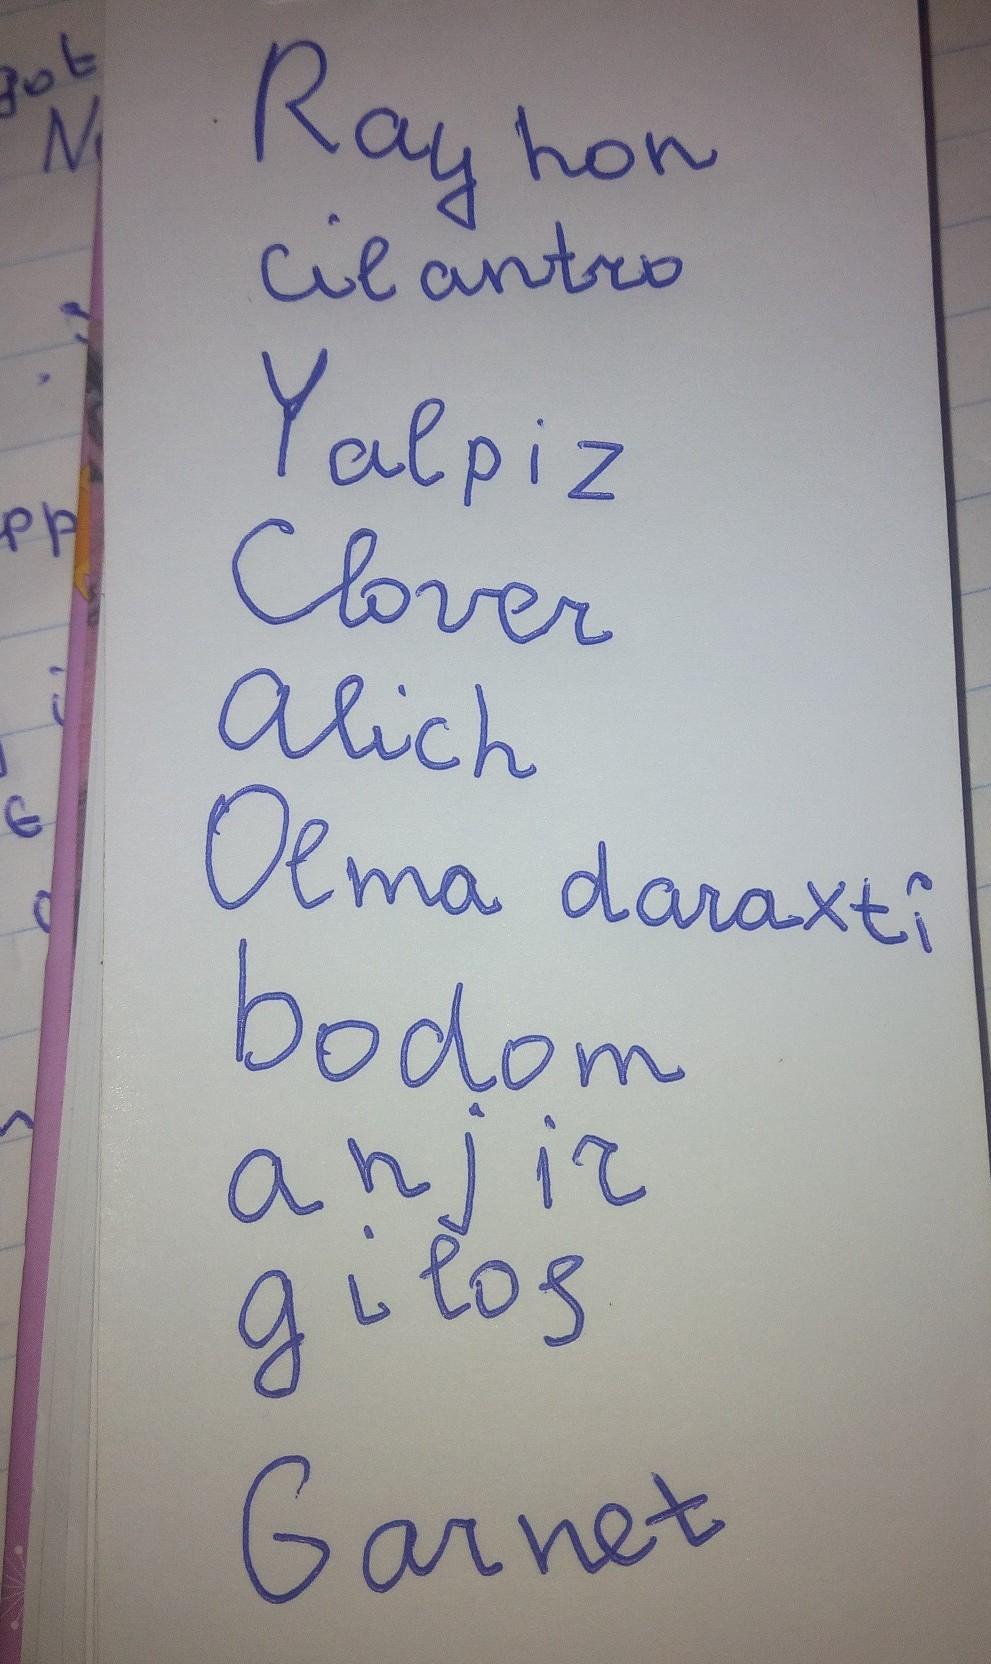 Rayhon
cilantro
Yalpiz
Clover
alich
Olma daraxti
bodom
anjir
gilos
Garnet